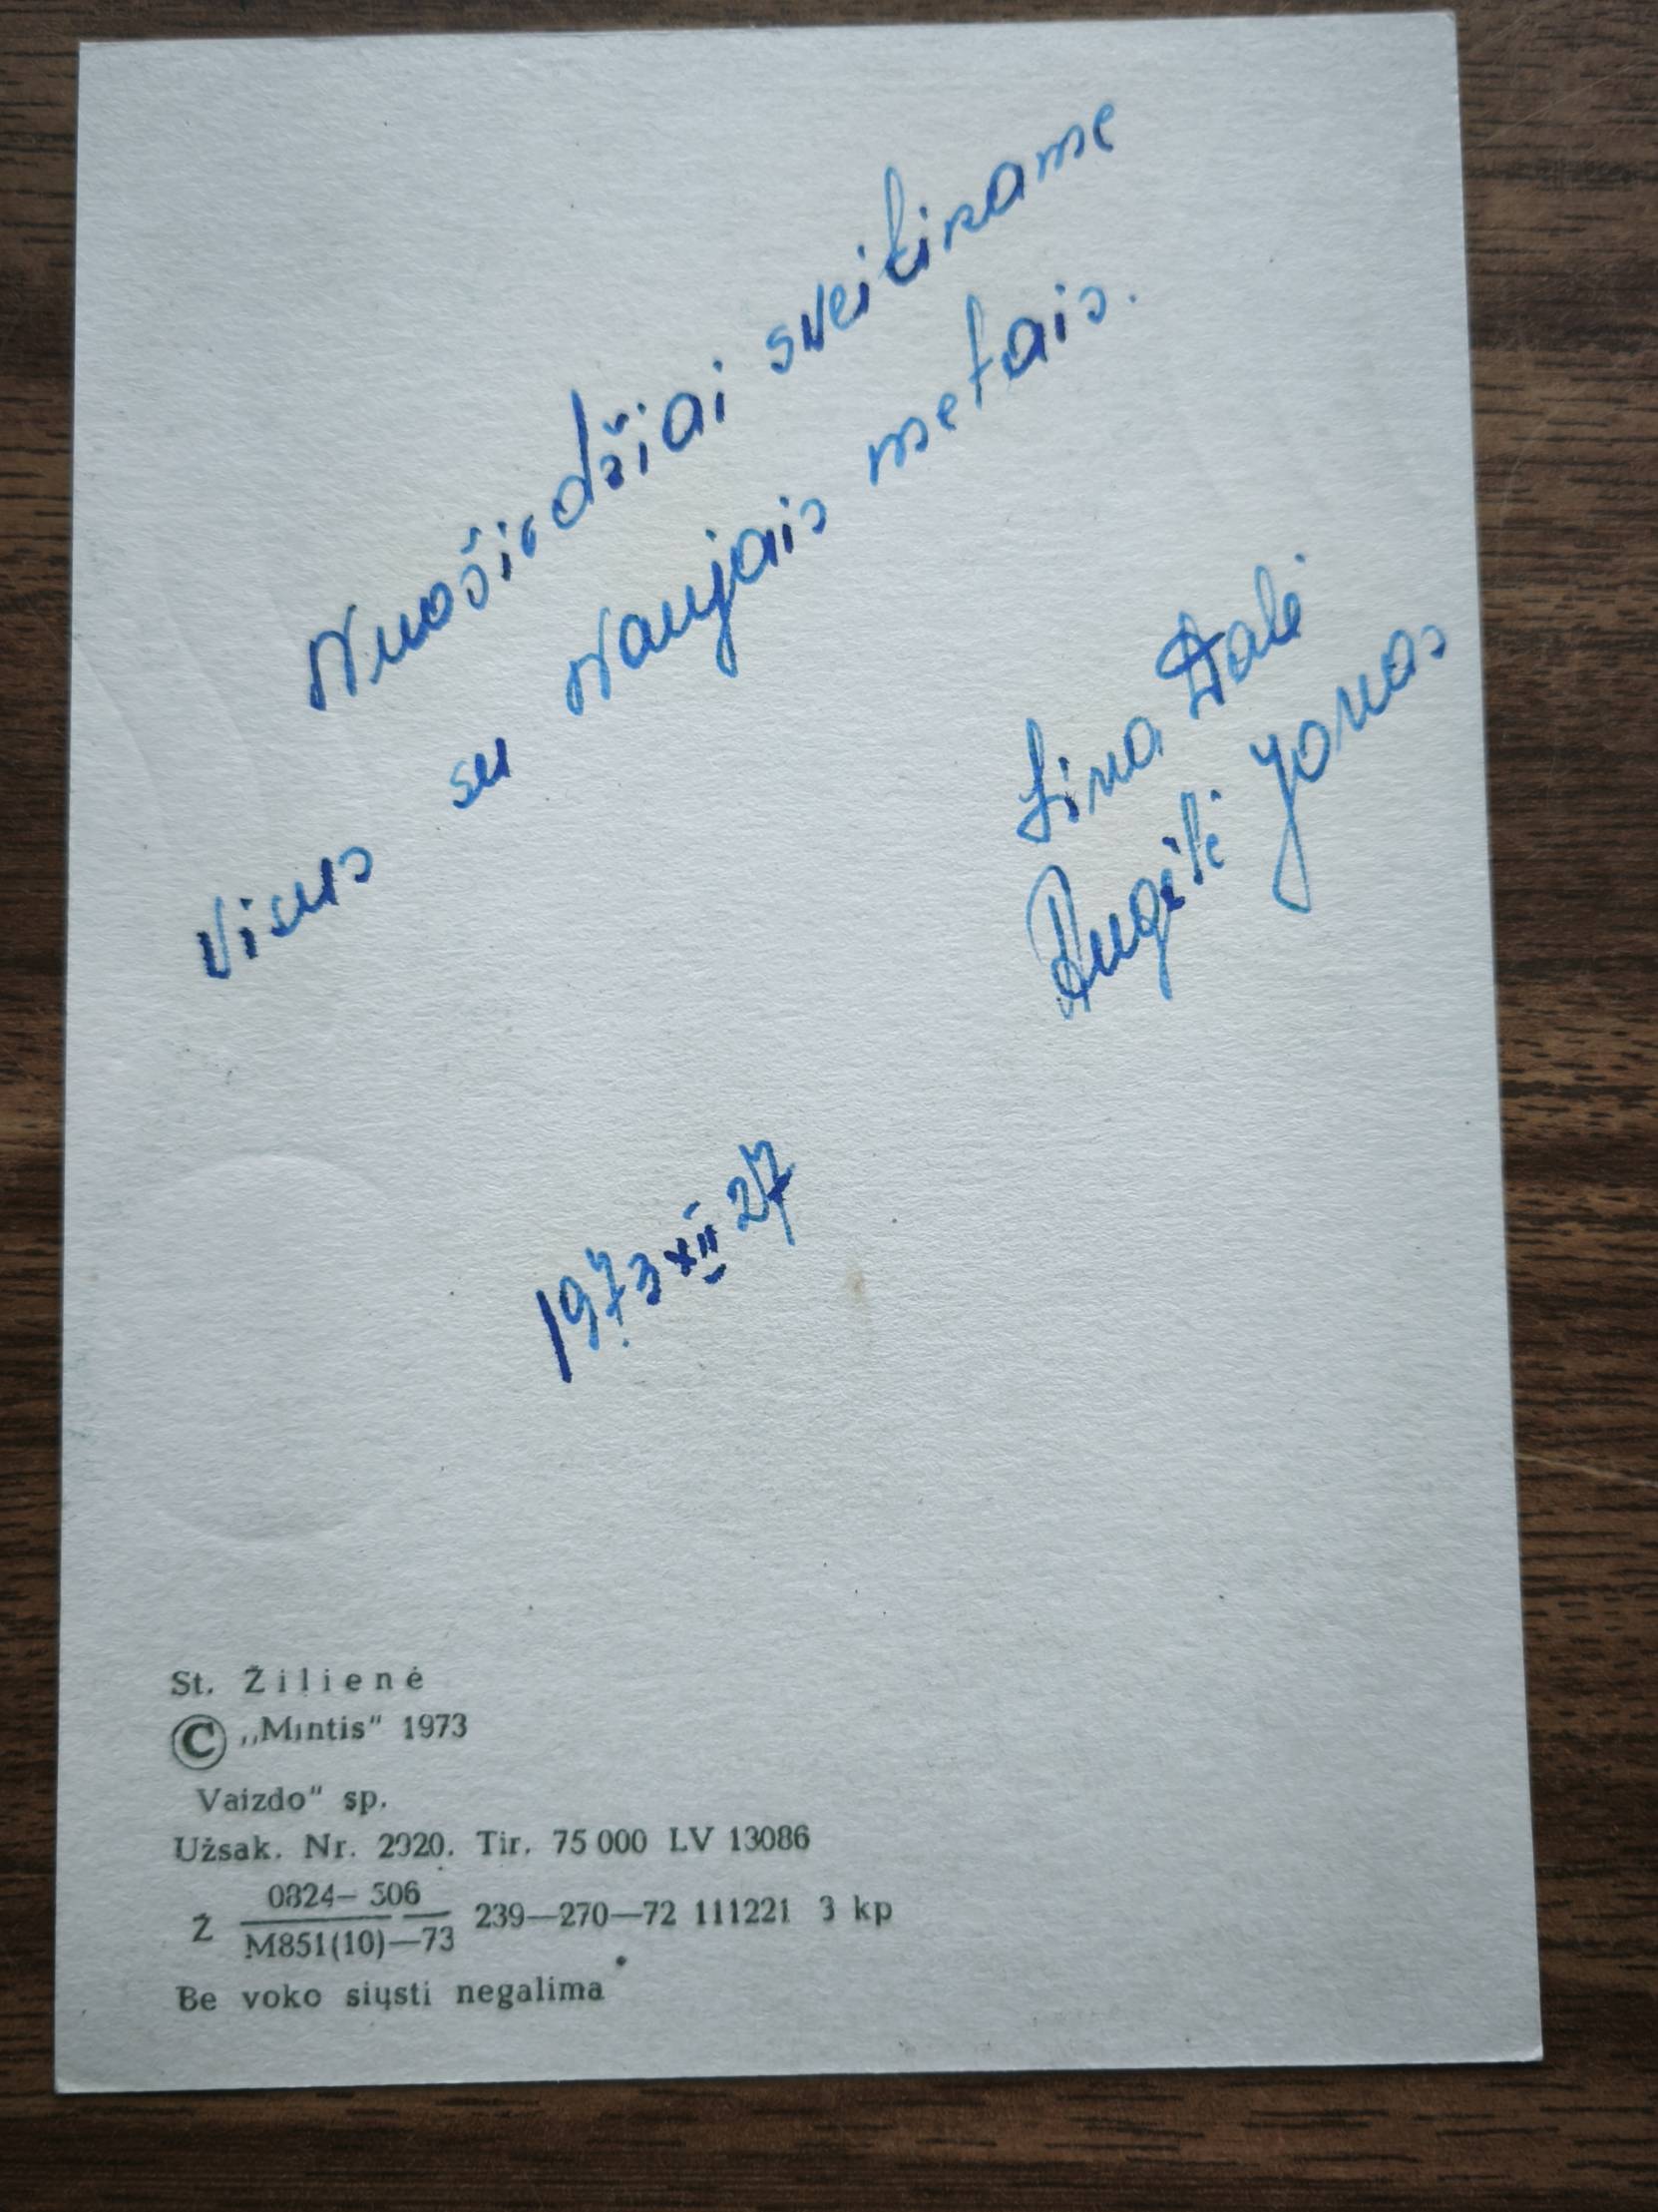 Nuoširdžiai sveikiname
Visus su Naujais metais.
Lina Dalė
Rugilė Jonas
1973 XII 27
St. Žilienė
© „Mintis" 1973
Vaizdo" sp.
Užsak. Nr. 2920. Tir. 75 000 LV 13086
0824—506
Ž M851(10)—73 239—270—72 111221 3 kp
Be voko siųsti negalima